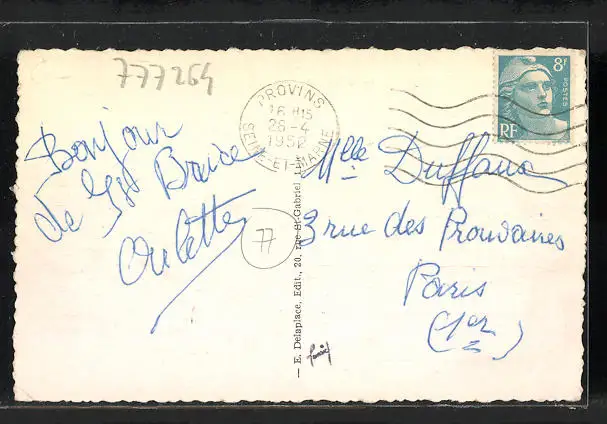 777264
PROVINS
16 H15
28-4
1950
SEINE-ET-MARNE
8F
POSTES
RF
Bonjour
de St Brice
Mlle Duffaud
3 rue des Prouvaires
Paris
(1er)
77
— E. Delaplace, Edit., 20, rue St-Gabriel